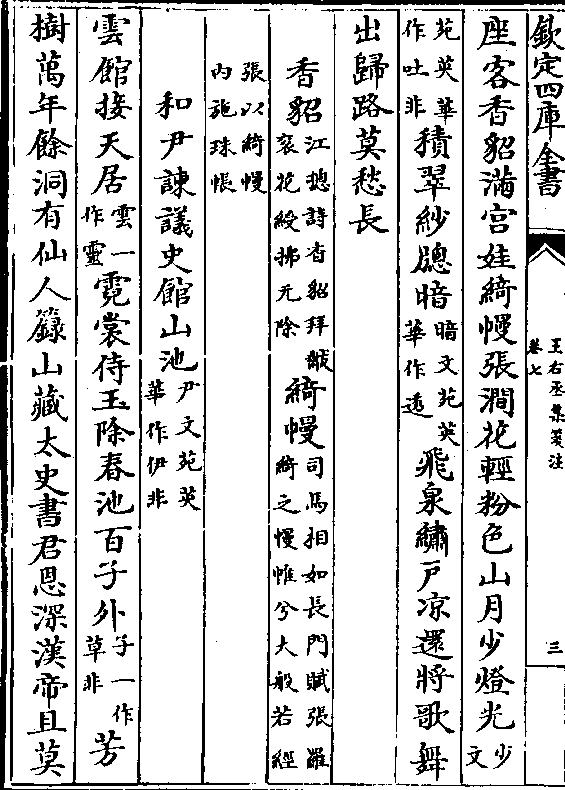 欽定四庫全書
王右丞集箋注
卷七
三
座客香貂滿宮娃綺幔張澗花輕粉色山月少燈光少文
苑英華作吐非積翠紗牕暗暗文苑英華作透飛泉繡戶凉還將歌舞
出歸路莫愁長
香貂江總詩香貂拜黻衮花綬拂元除綺幔司馬相如長門賦張羅綺之幔帷兮大般若經
張以綺幔内施珠帳
和尹諫議史館山池尹文苑英華作伊非
雲館接天居雲一作靈霓裳侍玉除春池百子外子一作草非芳
樹萬年餘洞有仙人籙山藏太史書君恩深漢帝且莫